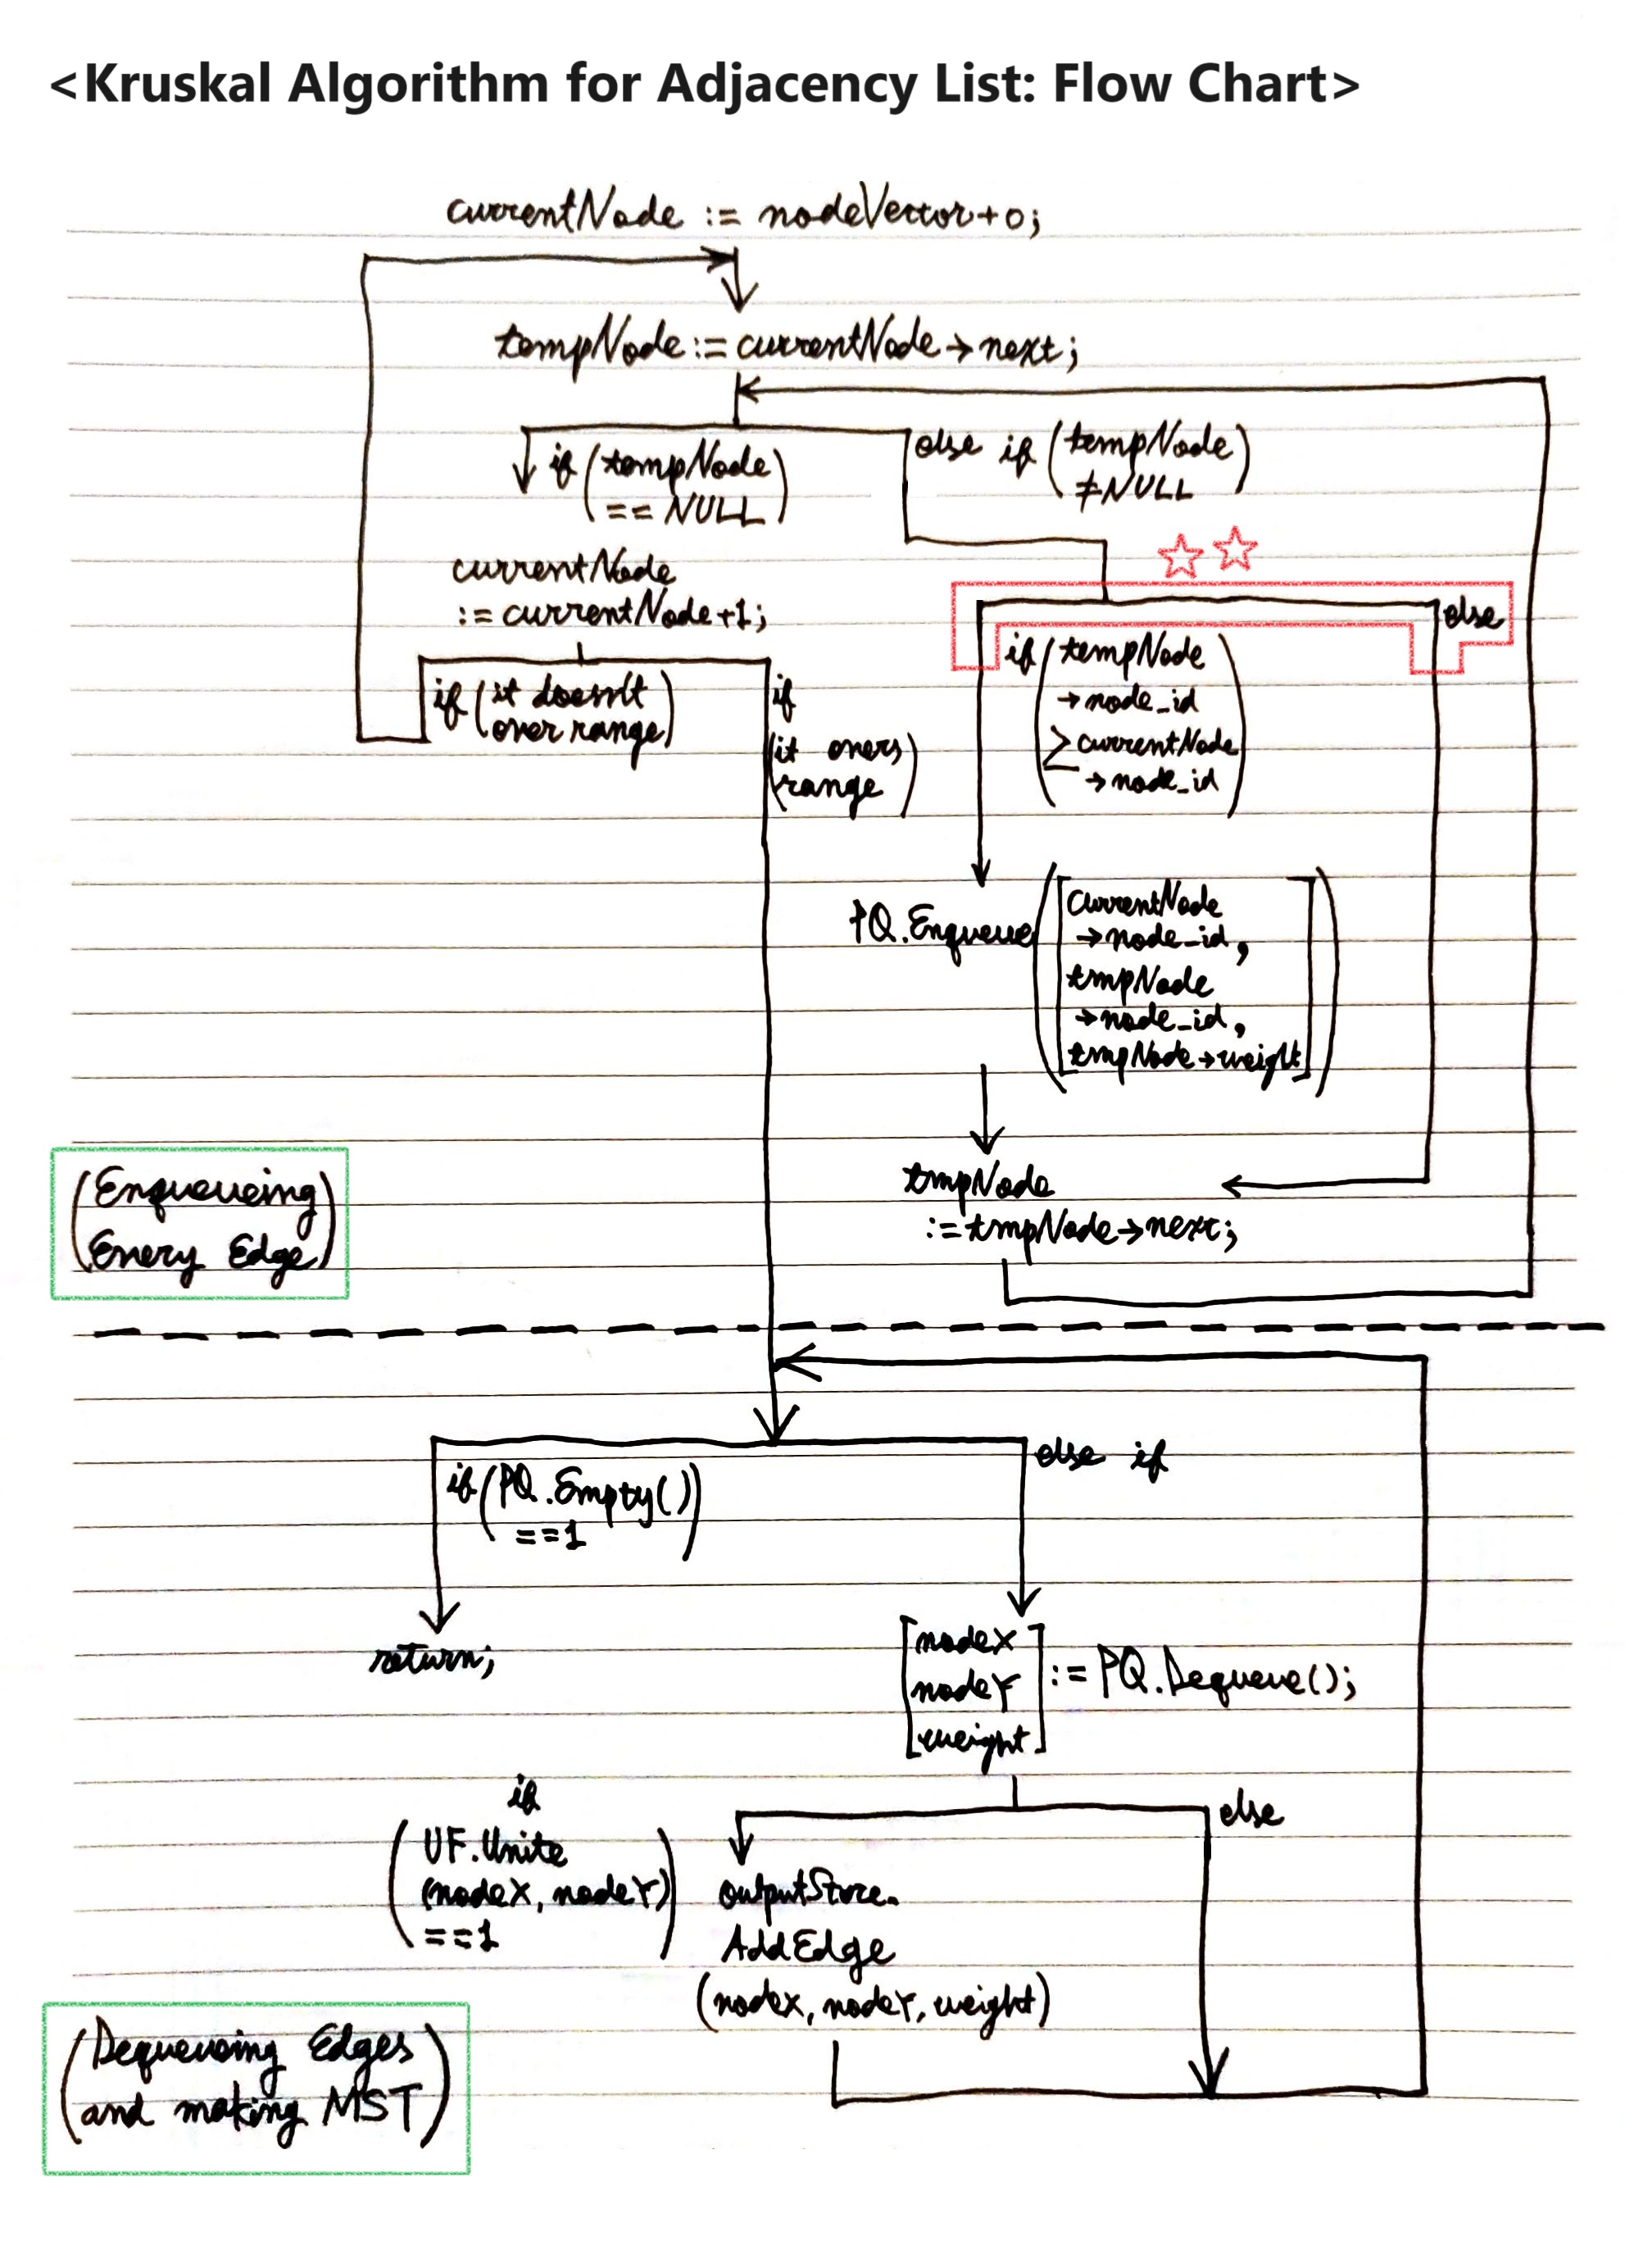 <Kruskal Algorithm for Adjacency List: Flow Chart>
currentNode := nodeVector+0;
tempNode := currentNode→next;
if (tempNode
== NULL)
else if (tempNode
≠NULL)
currentNode
:= currentNode+1;
☆☆
else
if (tempNode
→node_id
≥ currentNode
→node_id)
if (it doesn't
over range)
if
(it overs
range)
PQ.Enqueue([currentNode
→node_id,
tmpNode
→node_id,
tmpNode→weight])
(Enqueueing
Every Edge)
tmpNode
:=tmpNode→next;
if (PQ.Empty()
==1)
else if
return;
[nodeX
nodeY
weight] := PQ.Dequeue();
if
(UF.Unite
(nodeX, nodeY)
==1)
else
outputStore.
AddEdge
(nodeX, nodeY, weight)
(Dequeueing Edges
and making MST)